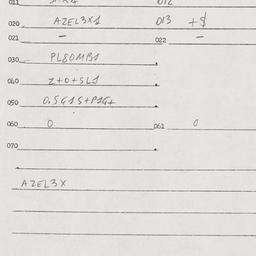 011 012
020 AZEL3X1 013 +$
021 - 022 -
030 PL80MB1
040 Z+0+SL1
050 0.5G1S+P1G+
060 0 061 0
070
AZEL3X